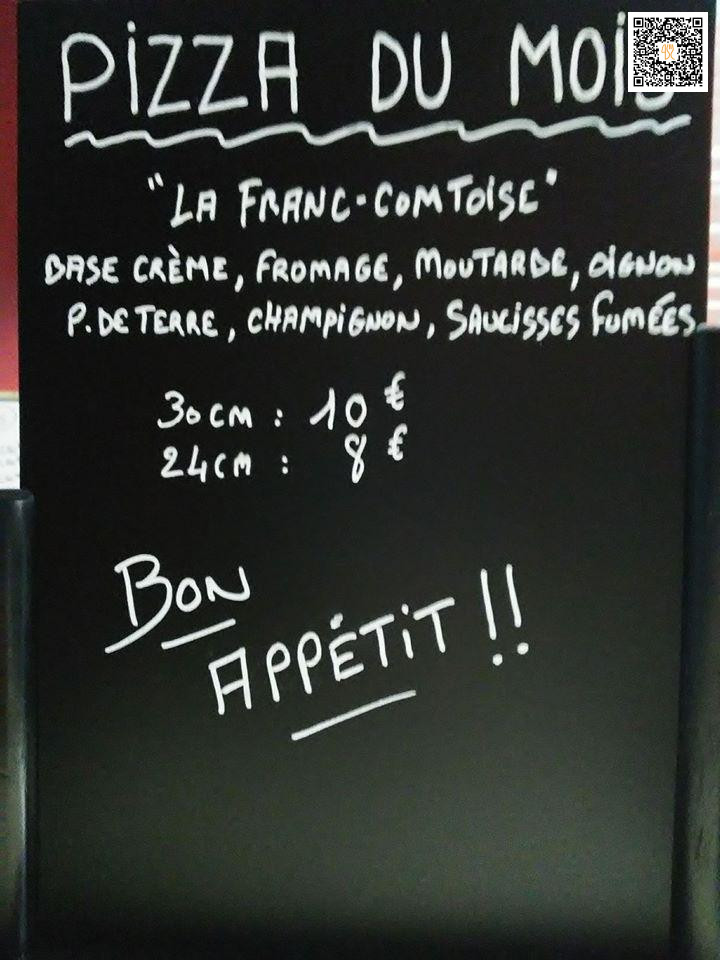 PiZZA DU MOiS
"LA FRANC-COMTOISE"
BASE CRÈME, FROMAGE, MOUTARDE, OIGNON
P. DE TERRE, CHAMPiGNON, SAUCISSES FUMÉES
30CM : 10 €
24CM : 8 €
BON
APPÉTiT !!